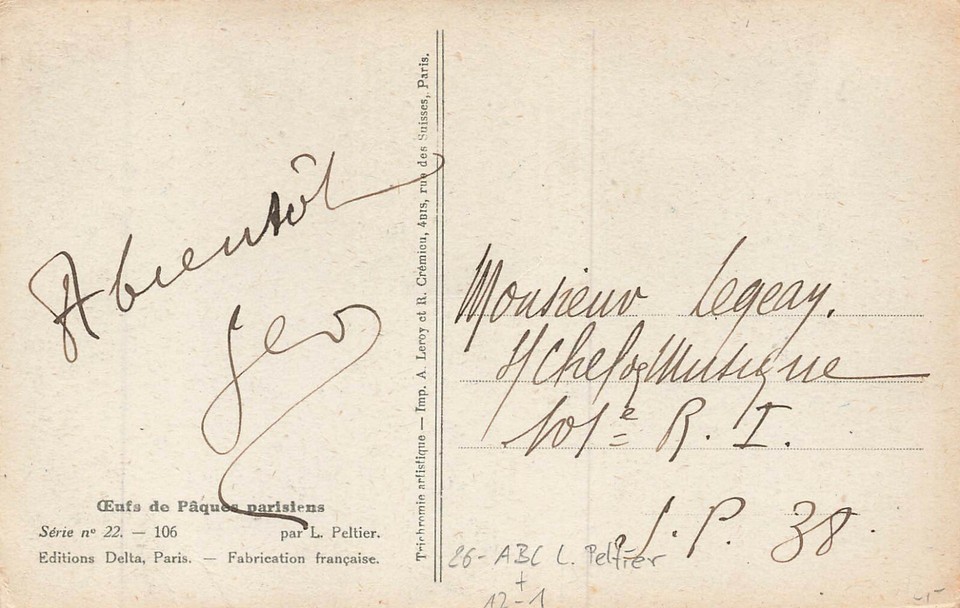 A bientôt
Geo
Œufs de Pâques parisiens
Série nº 22. — 106 par L. Peltier.
Editions Delta, Paris. — Fabrication française.
Trichromie artistique — Imp. A. Leroy et R. Crémieu, 4BIS, rue des Suisses, Paris.
Monsieur Legeay.
S/ Chef de Musique
101e R. I.
S. P. 38.
26 - ABC L. Peltier
+
12-1